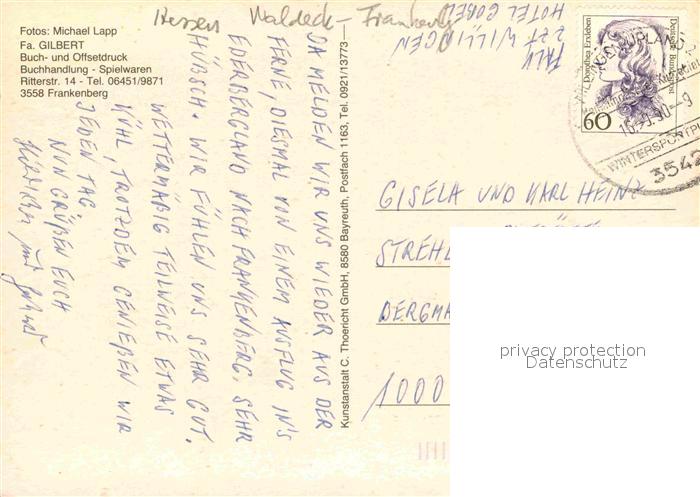 Hessen Waldeck-Frankenberg
Fotos: Michael Lapp
Fa. GILBERT
Buch- und Offsetdruck
Buchhandlung - Spielwaren
Ritterstr. 14 - Tel. 06451/9871
3558 Frankenberg
DA MELDEN WIR UNS WIEDER AUS DER
FERNE, DIESMAL VON EINEM AUSFLUG IN'S
EDERBERGLAND NACH FRANKENBERG. SEHR
HÜBSCH. WIR FÜHLEN UNS SEHR GUT.
WETTERMÄßIG TEILWEISE ETWAS
KÜHL, TROTZDEM GENIEßEN WIR
JEDEN TAG
NUN GRÜßEN EUCH
und
Kunstanstalt C. Thoericht GmbH, 8580 Bayreuth, Postfach 1163, Tel. 0921/13773
ZZT WILLINGEN
HOTEL GÖBEL
Dorothea Erxleben
Deutsche Bundespost
60
WINTERSPORTPL
3542
GISELA UND KARL HEINZ
STREHL
BERGMA
1000
privacy protection
Datenschutz